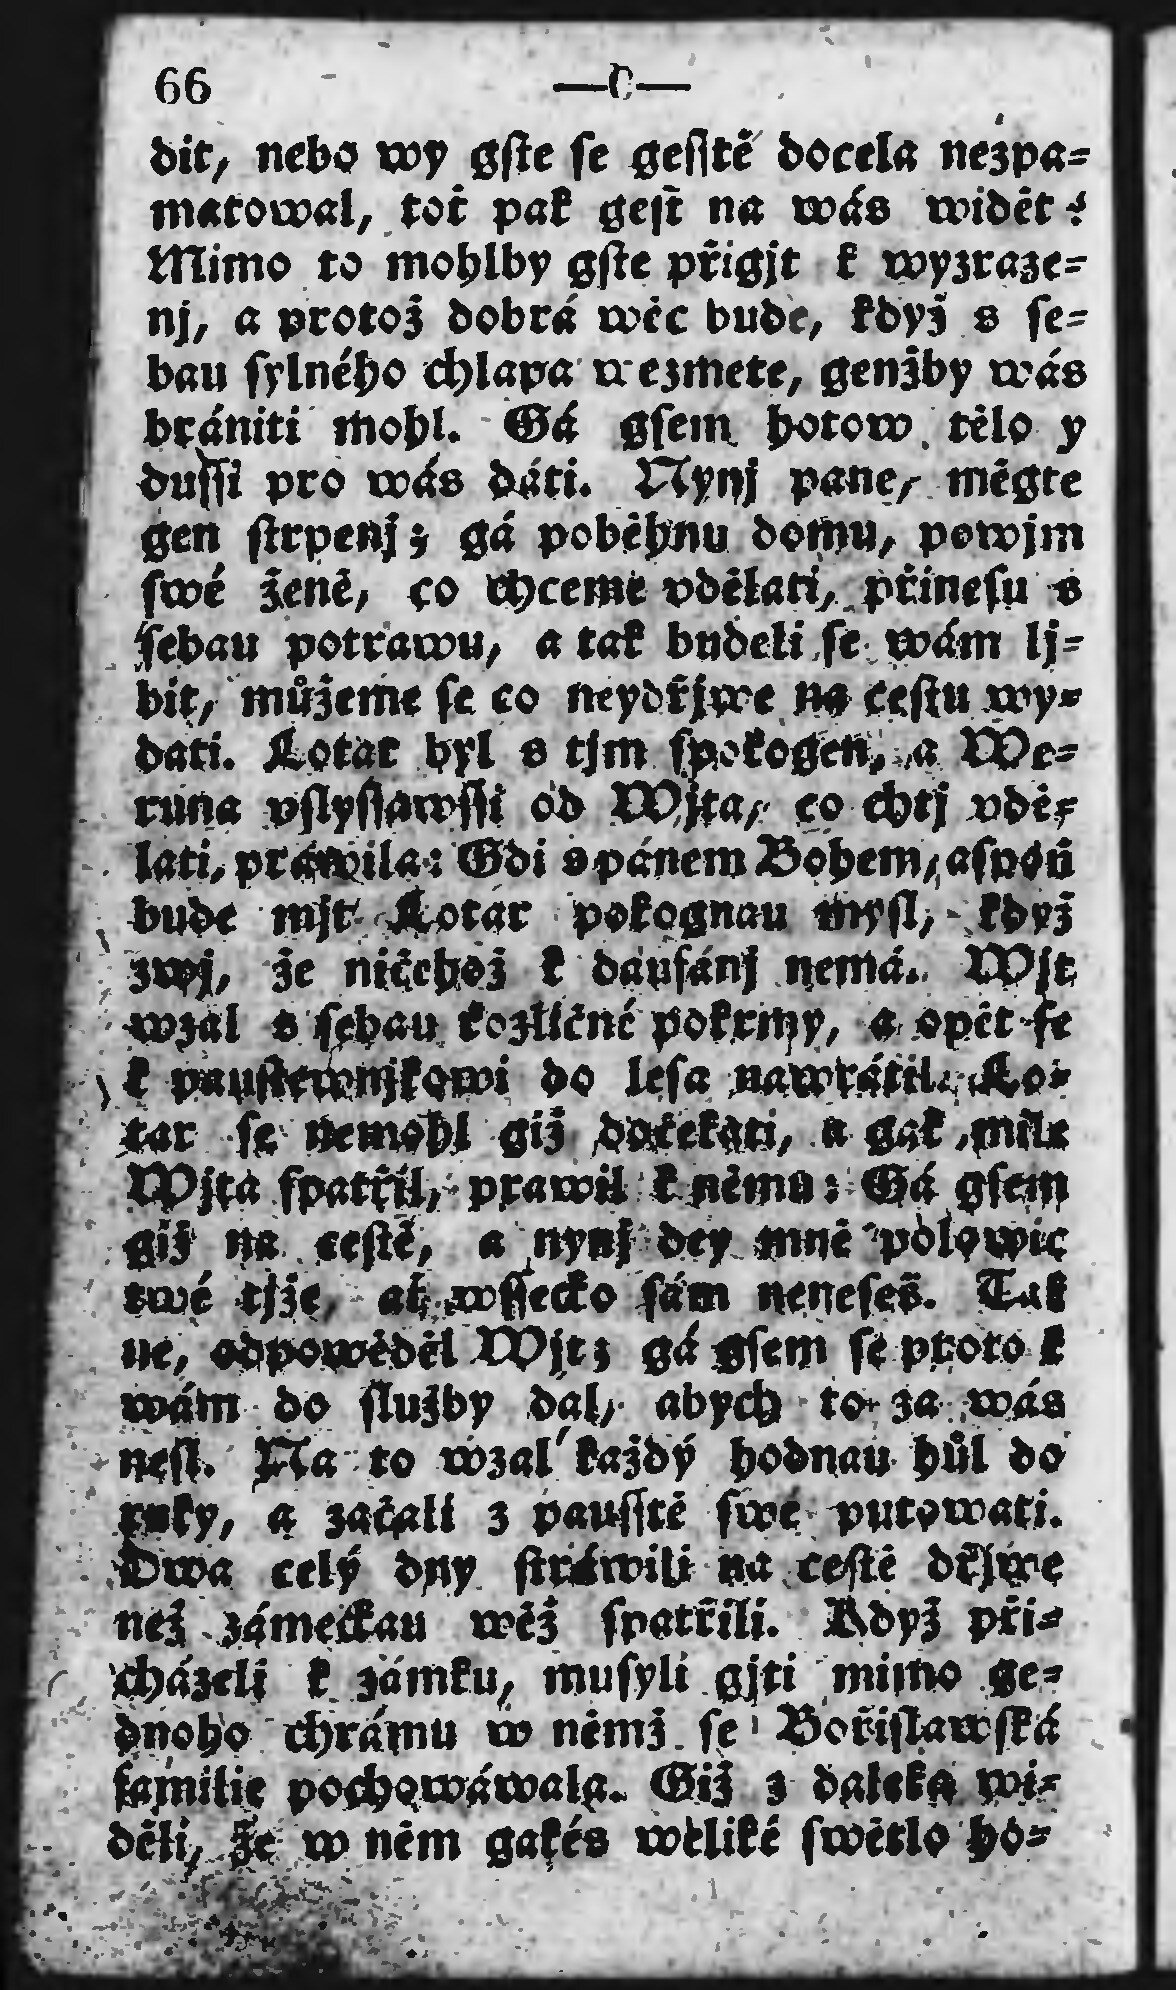 66 —C—
dit, nebo wy gſte ſe geſſtě docela nezpa=
matowal, toť pak geſt na wás widět?
Mimo to mohlby gſte přigjt k wyzraze=
nj, a protož dobrá wěc bude, když s ſe=
bau ſylného chlapa wezmete, genžby wás
brániti mohl. Gá gſem hotow tělo y
duſſi pro wás dáti. Nynj pane, měgte
gen ſtrpenj; gá poběhnu domu, powjm
ſwé ženě, co chceme vdělati, přineſu s
ſebau potrawu, a tak budeli ſe wám lj=
bit, můžeme ſe co neydřjwe na ceſtu wy=
dati. Lotar byl s tjm ſpokogen, a We=
runa vſlyſſawſſi od Wjta, co chtj vdě=
lati, prawila: Gdi s pánem Bohem, aſpoň
bude mjt Lotar pokognau myſl, když
zwj, že ničehož k daufánj nemá. Wjt
wzal s ſebau rozličné pokrmy, a opět ſe
k pauſtewnjkowi do leſa nawrátil. Lo=
tar ſe nemohl giž dočekati, a gak mile
Wjta ſpatřil, prawil k němu: Gá gſem
giž na ceſtě, a nynj dey mně polowic
twé tjže, ať wſſecko ſám neneſeš. Tak
ne, odpowěděl Wjt; gá gſem ſe proto k
wám do ſlužby dal, abych to za wás
neſl. Na to wzal každý hodnau hůl do
ruky, a začali z pauſſtě ſwé putowati.
Dwa celý dny ſtráwili na ceſtě dřjwe
než zámeckau wěž ſpatřili. Když při=
cházeli k zámku, muſyli gjti mimo ge=
dnoho chrámu w němž ſe Bořiſlawſká
familie pochowáwala. Giž z daleka wi=
děli, že w něm gakés weliké ſwětlo ho=